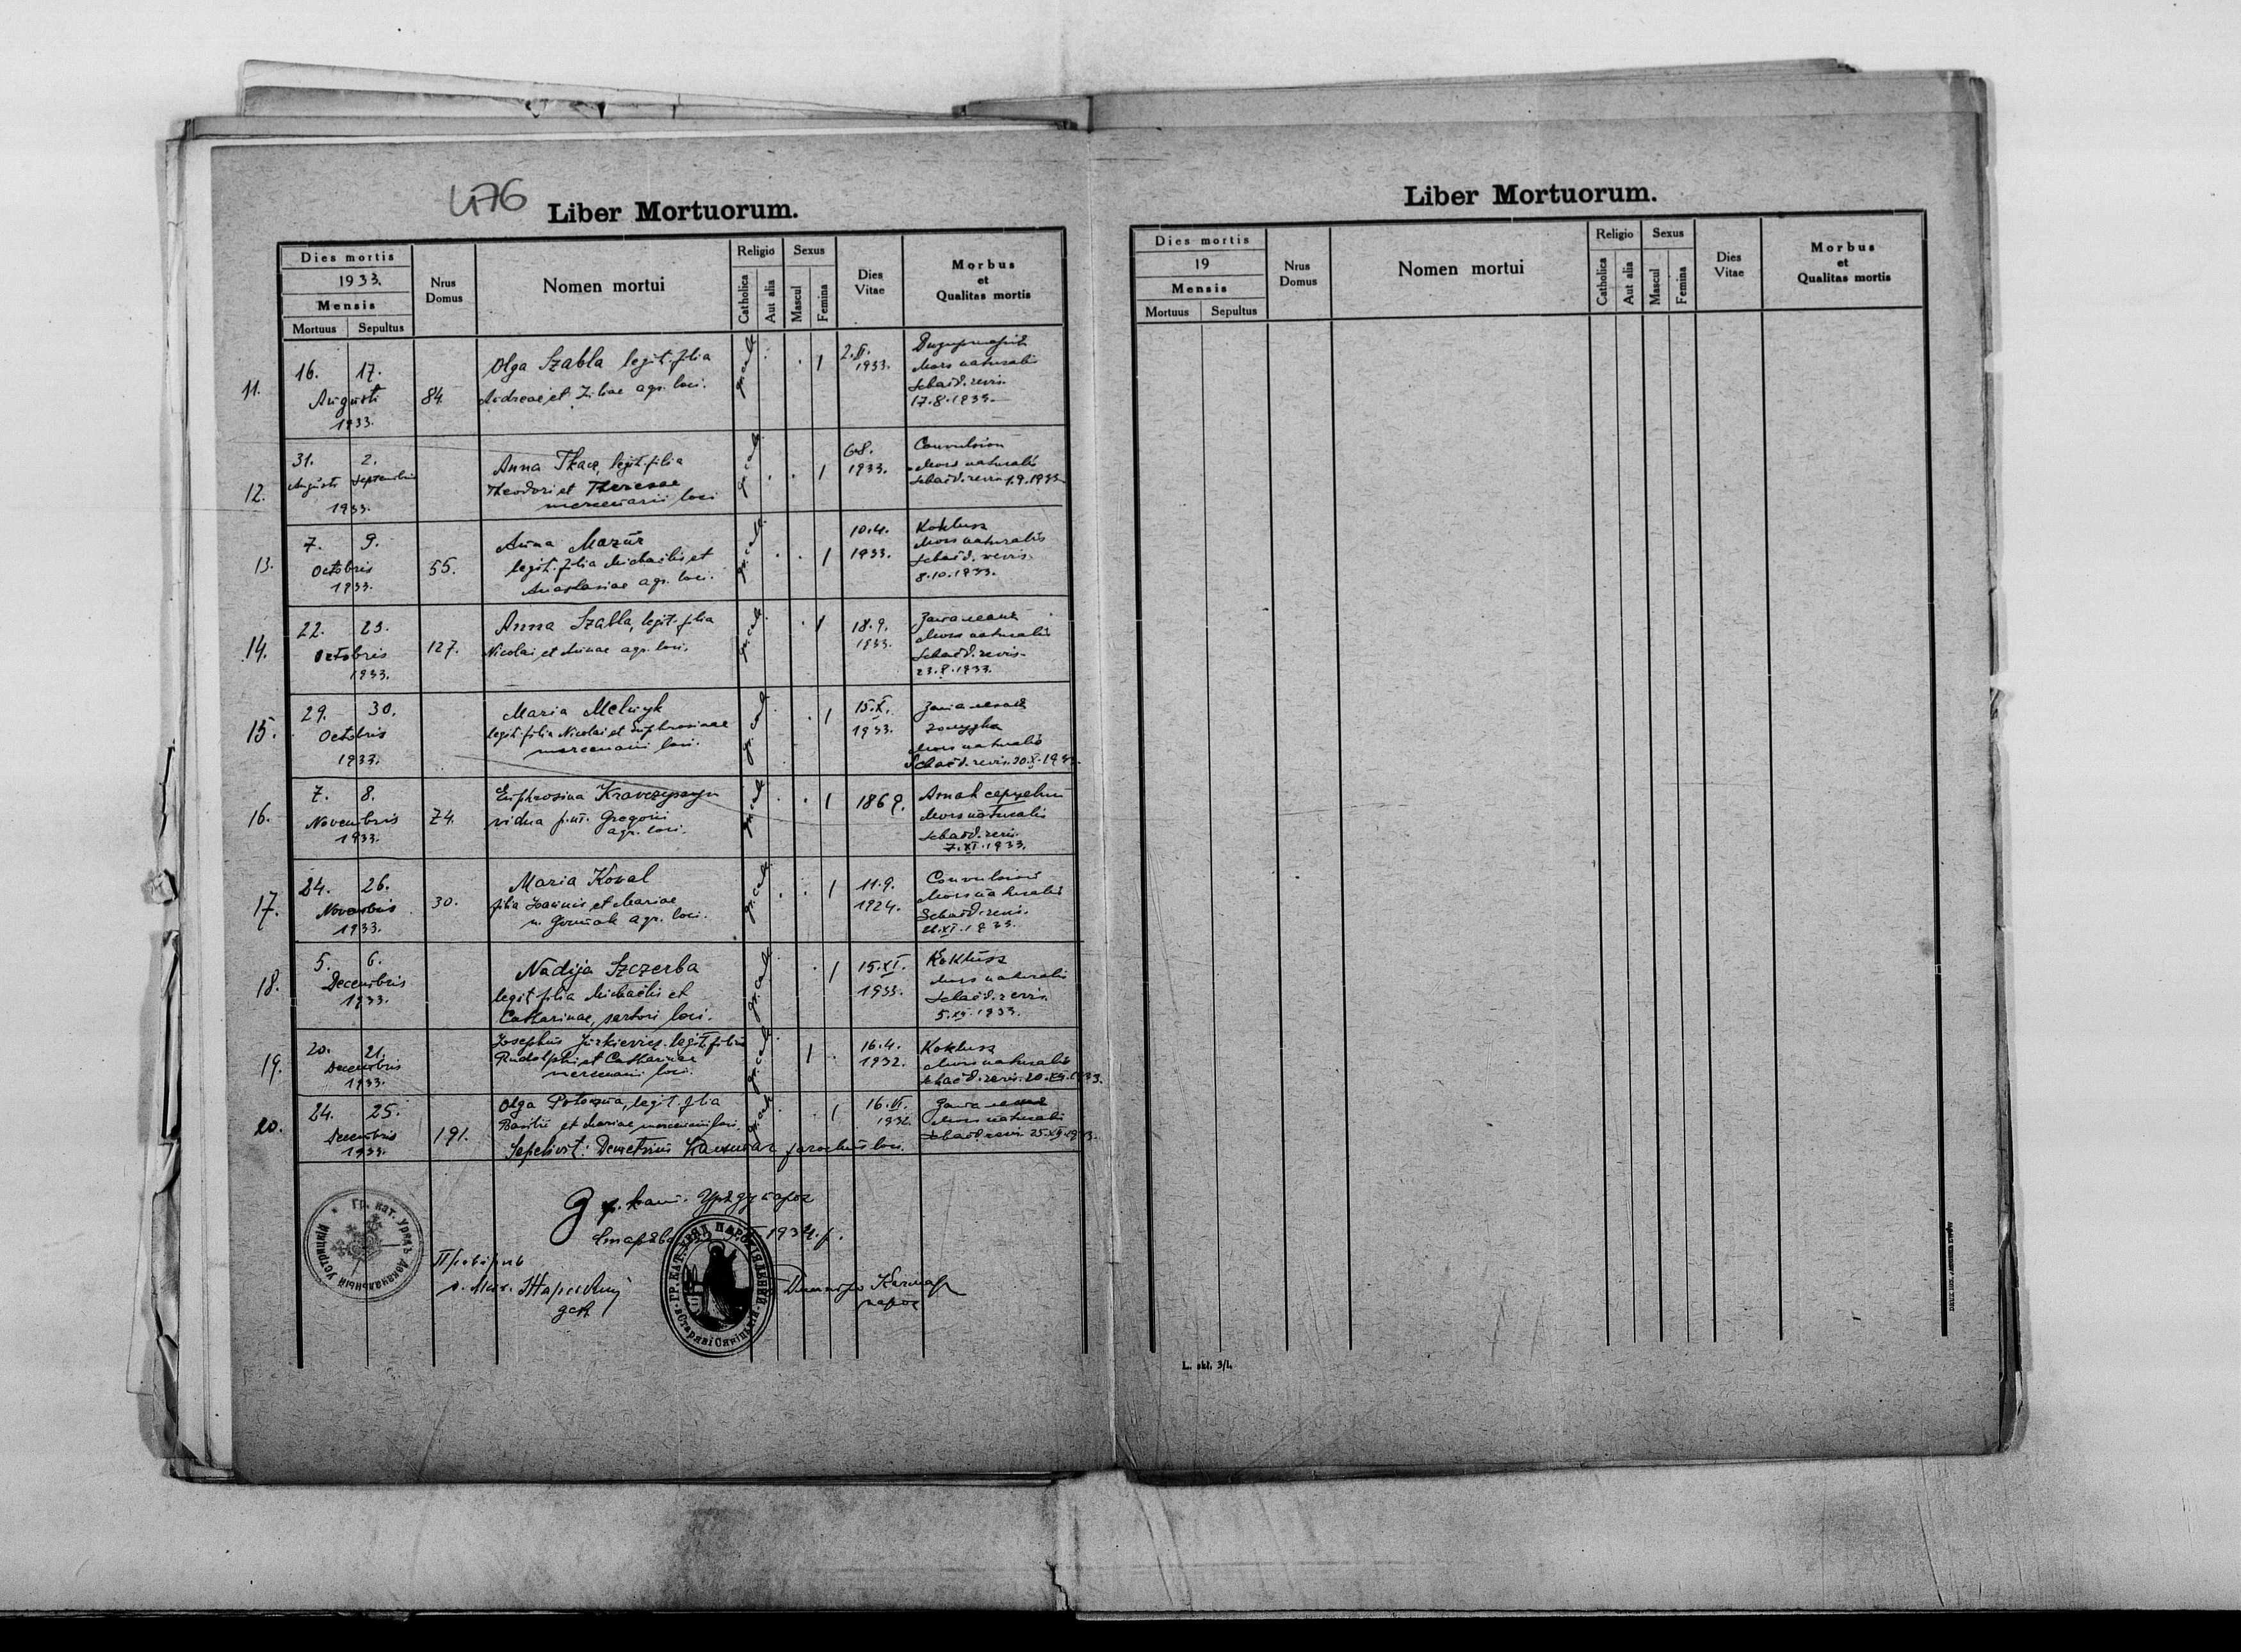 476
Liber Mortuorum.
Dies mortis
1933.
Mensis
Mortuus Sepultus
Nrus Domus
Nomen mortui
Religio
Catholica Aut alia
Sexus
Mascul Femina
Dies Vitae
Morbus
et
Qualitas mortis
11.
16. 17.
Augusti
1933.
84.
Olga Szabla legit. filia
Andreae et Juliae agr. loci.
gr. cath.
1
2.VI.
1933.
Mors naturalis
Schaed. revis.
17.8.1933.
12.
31. 2.
Augusti Septembris
1933.
Anna Tkacz, legit. filia
Theodori et Theresae
mercenarii loci
gr. cath.
1
6.8.
1933.
Convulsion
Mors naturalis
Schaed. revis. 1.9.1933
13.
7. 9.
Octobris
1933.
55.
Anna Mazur
legit. filia Michaelis et
Anastasiae agr. loci.
gr. cath.
1
10.4.
1933.
Koklusz
Mors naturalis
Schaed. revis.
8.10.1933.
14.
22. 23.
Octobris
1933.
127.
Anna Szabla, legit. filia
Nicolai et Annae agr. loci.
gr. cath.
1
18.9.
1933.
Mors naturalis
Schaed. revis.
23.X.1933.
15.
29. 30.
Octobris
1933.
Maria Melnyk
legit. filia Nicolai et Euphrosinae
mercenarii loci.
gr. cath.
1
15.X.
1933.
Mors naturalis
Schaed. revis. 30.X.19
16.
7. 8.
Novembris
1933.
74.
Euphrosina
vidua p. m. Gregorii
agr. loci.
gr. cath.
1
1869.
Атак серцевий
Mors naturalis
Schaed. revis.
7.XI.1933.
17.
24. 26.
Novembris
1933.
30.
Maria Koval
filia Joannis et Mariae
agr. loci.
gr. cath.
1
11.9.
1924.
Convulsion
Mors naturalis
Schaed. revis.
XI.1933.
18.
5. 6.
Decembris
1933.
Nadija Szczerba
legit filia Michaelis et
Catharinae, sartori loci.
gr. cath.
1
15.XI.
1933.
Koklusz
Mors naturalis
Schaed. revis.
5.XII.1933.
19.
20. 21.
Decembris
1933.
Josephus Jurkiewicz legit. filius
Rudolphi et Catharinae
mercenarii loci.
gr. cath.
1
16.4.
1932.
Koklusz
Mors naturalis
Schaed. revis. 20.XII.1933.
20.
24. 25.
Decembris
1933.
191.
Olga Potoczna, legit. filia
Basilii et Mariae mercenarii loci.
gr. cath.
1
16.VI.
1932.
Mors naturalis
Schaed. revis. 25.XII.1933.
Sepelivit: Demetrius Kaczmar parochus loci.
З гр. кат. Уряду парох
1934 р.
Гр. кат. урядъ
Провірив
дек
ГР. КАТ. УРЯД ПАРОХІЯЛЬНИЙ
Димитро Качмар
парох
Liber Mortuorum.
Dies mortis
19
Mensis
Mortuus Sepultus
Nrus Domus
Nomen mortui
Religio
Catholica Aut alia
Sexus
Mascul Femina
Dies Vitae
Morbus
et
Qualitas mortis
L. skł. 3/I.